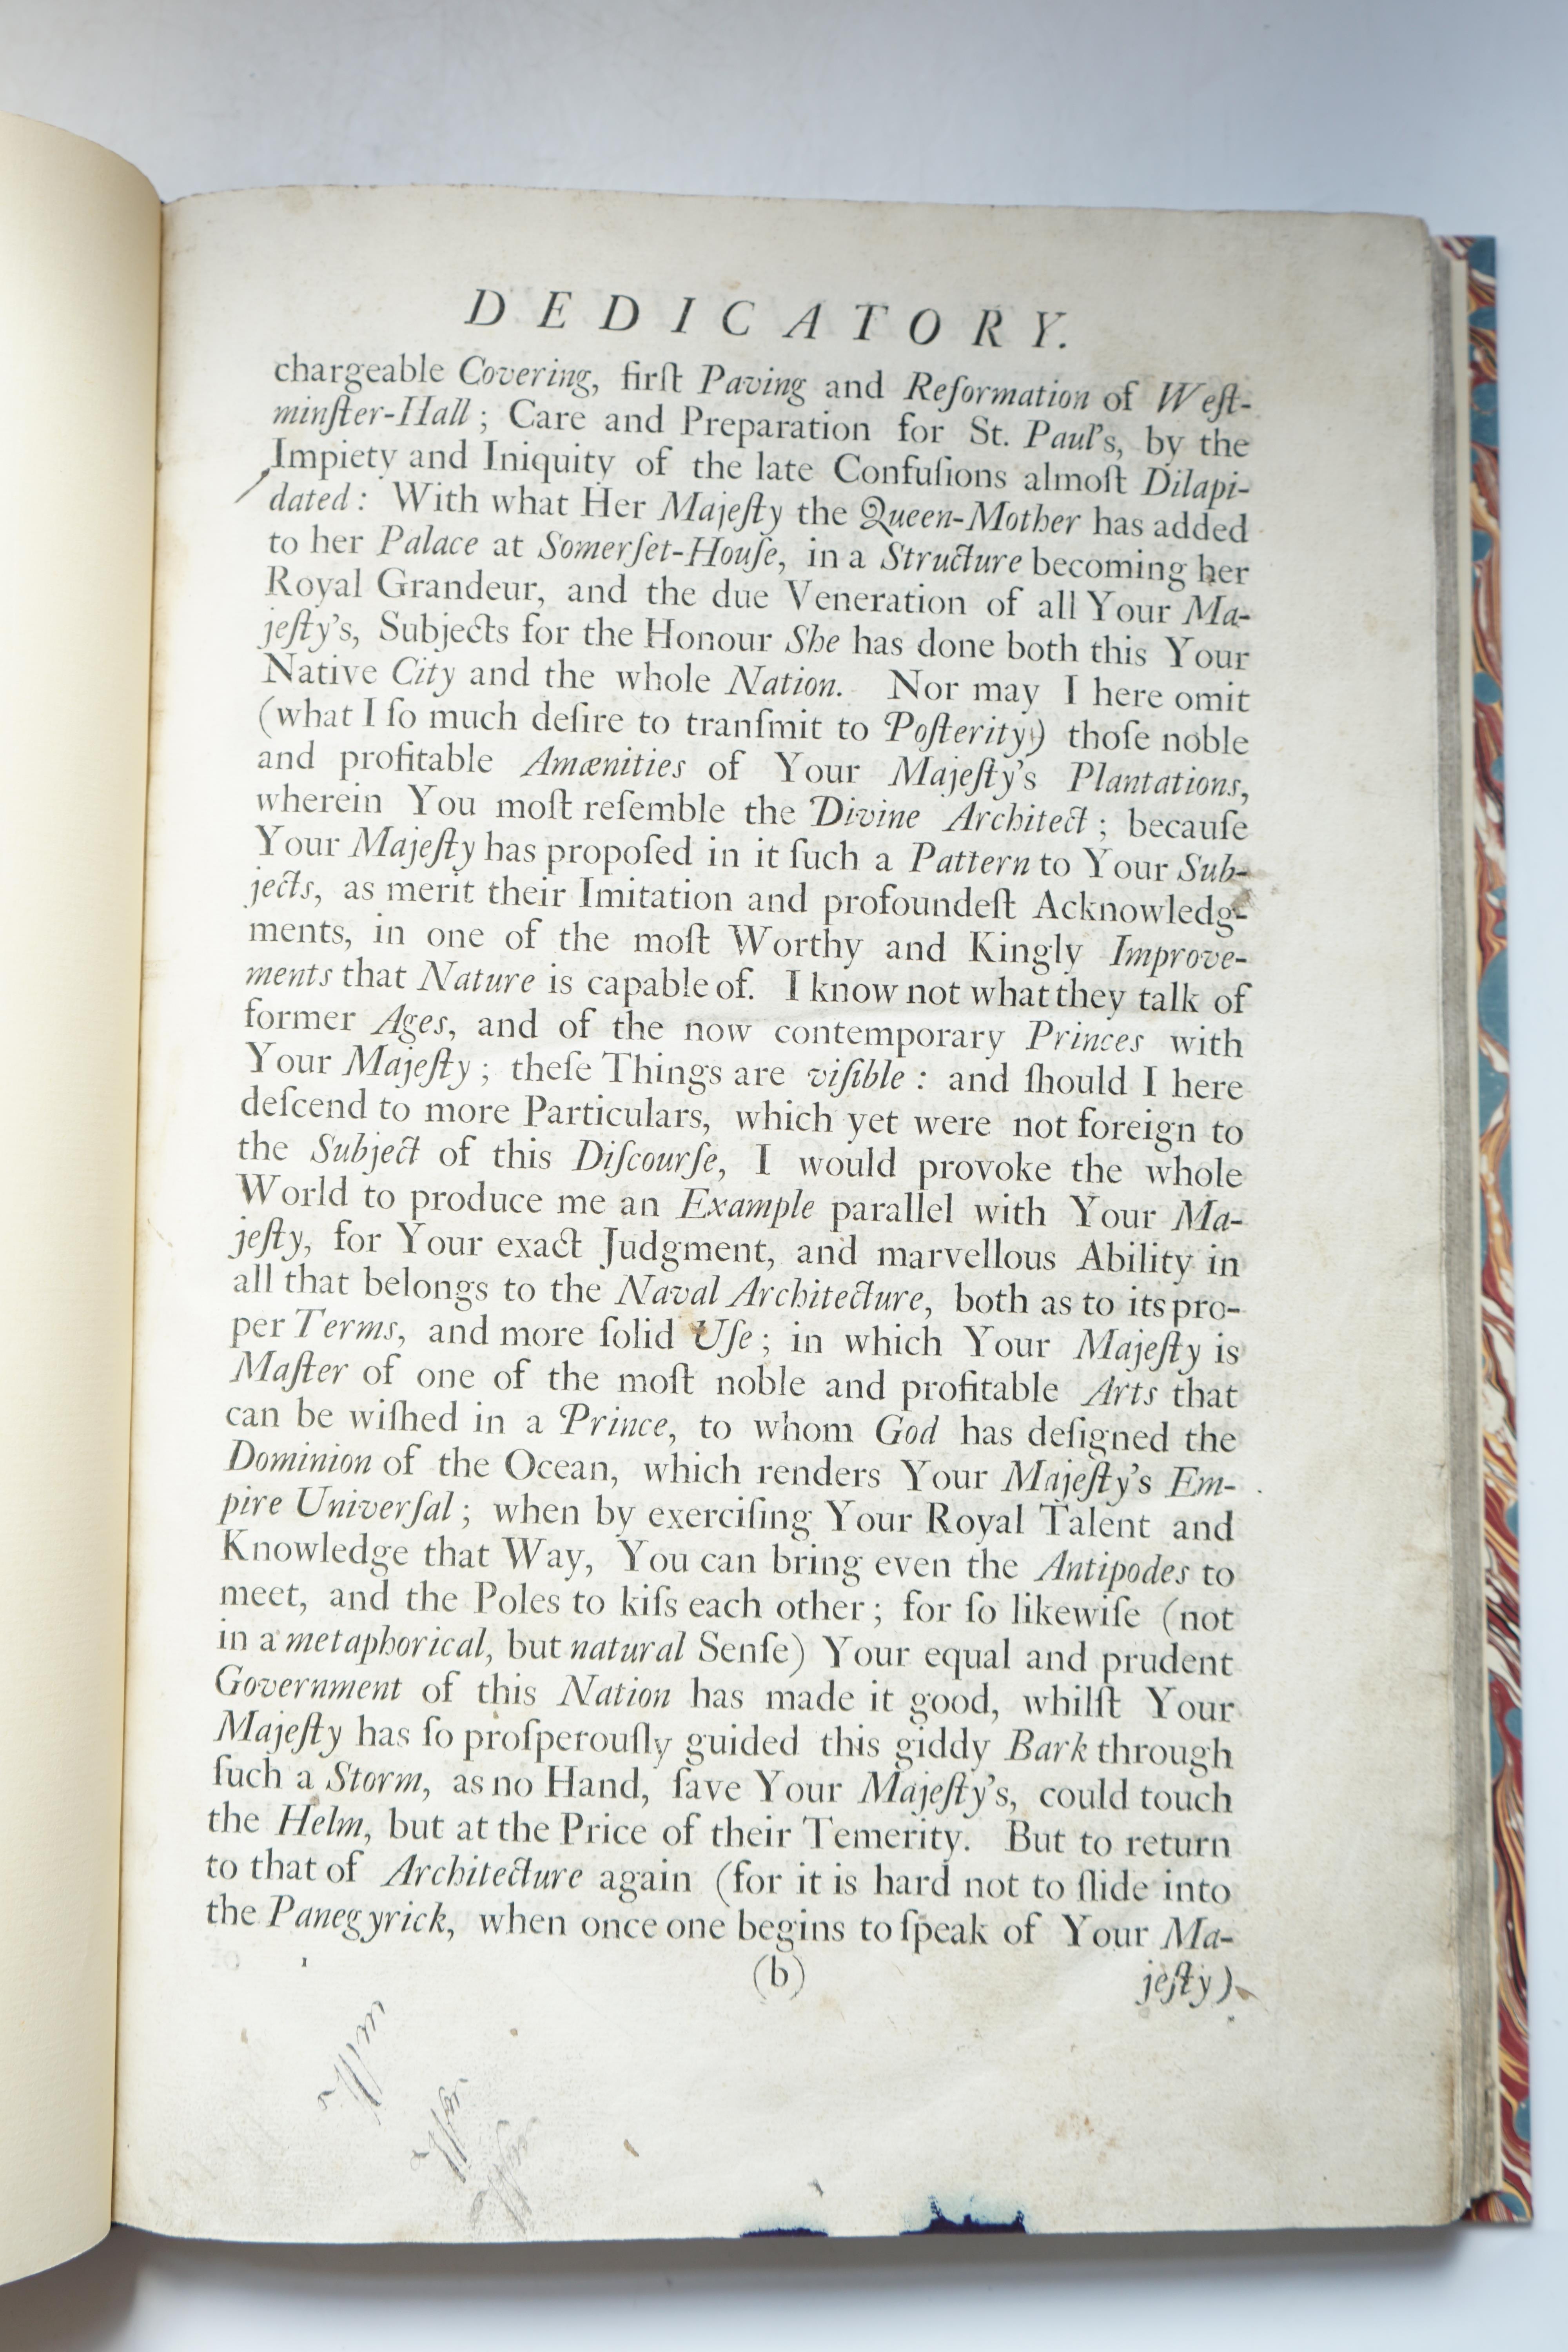 DEDICATORY.
chargeable Covering, firſt Paving and Reformation of Weſt-
minſter-Hall ; Care and Preparation for St. Paul's, by the
Impiety and Iniquity of the late Confuſions almoſt Dilapi-
dated : With what Her Majeſty the Queen-Mother has added
to her Palace at Somerſet-Houſe, in a Structure becoming her
Royal Grandeur, and the due Veneration of all Your Ma-
jeſty's, Subjects for the Honour She has done both this Your
Native City and the whole Nation. Nor may I here omit
(what I ſo much deſire to tranſmit to Poſterity) thoſe noble
and profitable Amænities of Your Majeſty's Plantations,
wherein You moſt reſemble the Divine Architect ; becauſe
Your Majeſty has propoſed in it ſuch a Pattern to Your Sub-
jects, as merit their Imitation and profoundeſt Acknowledg-
ments, in one of the moſt Worthy and Kingly Improve-
ments that Nature is capable of. I know not what they talk of
former Ages, and of the now contemporary Princes with
Your Majeſty ; theſe Things are viſible : and ſhould I here
deſcend to more Particulars, which yet were not foreign to
the Subject of this Diſcourſe, I would provoke the whole
World to produce me an Example parallel with Your Ma-
jeſty, for Your exact Judgment, and marvellous Ability in
all that belongs to the Naval Architecture, both as to its pro-
per Terms, and more ſolid Uſe ; in which Your Majeſty is
Maſter of one of the moſt noble and profitable Arts that
can be wiſhed in a Prince, to whom God has deſigned the
Dominion of the Ocean, which renders Your Majeſty's Em-
pire Univerſal ; when by exerciſing Your Royal Talent and
Knowledge that Way, You can bring even the Antipodes to
meet, and the Poles to kiſs each other ; for ſo likewiſe (not
in a metaphorical, but natural Senſe) Your equal and prudent
Government of this Nation has made it good, whilſt Your
Majeſty has ſo proſperouſly guided this giddy Bark through
ſuch a Storm, as no Hand, ſave Your Majeſty's, could touch
the Helm, but at the Price of their Temerity. But to return
to that of Architecture again (for it is hard not to ſlide into
the Panegyrick, when once one begins to ſpeak of Your Ma-
(b) jeſty)